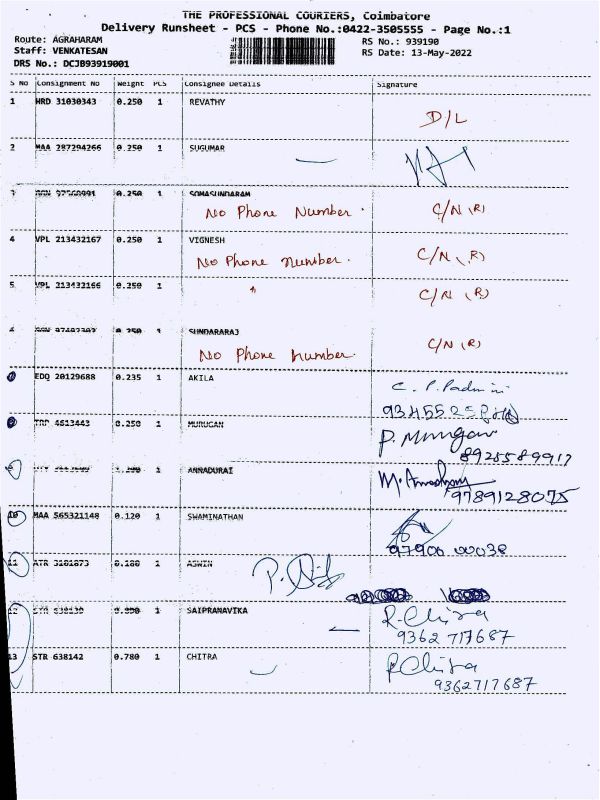 THE PROFESSIONAL COURIERS, Coimbatore
Delivery Runsheet - PCS - Phone No.:0422-3505555 - Page No.:1
Route: AGRAHARAM
Staff: VENKATESAN
DRS No.: DCJB93919001
RS No.: 939190
RS Date: 13-May-2022
S No Consignment No Weight PCS Consignee Details Signature
1 HRD 31030343 0.250 1 REVATHY D/L
2 MAA 287294266 0.250 1 SUGUMAR
0.250 1 SOMASUNDARAM
No Phone Number. C/N (R)
4 VPL 213432167 0.250 1 VIGNESH
No Phone number. C/N (R)
5 VPL 213432166 0.250 1 C/N (R)
SUNDARARAJ
No Phone number. C/N (R)
EDQ 20129688 0.235 1 AKILA C. P. Padmini
TRP 4613443 0.250 1 MURUGAN P. Murugan
8925589917
1 ANNADURAI
9789128075
10 MAA 565321148 0.120 1 SWAMINATHAN
97900 00038
11 ATR 3101873 0.180 1 ASWIN
12 STR 638139 1 SAIPRANAVIKA R. Chitra
9362717687
13 STR 638142 0.780 1 CHITRA R Chitra
9362717687